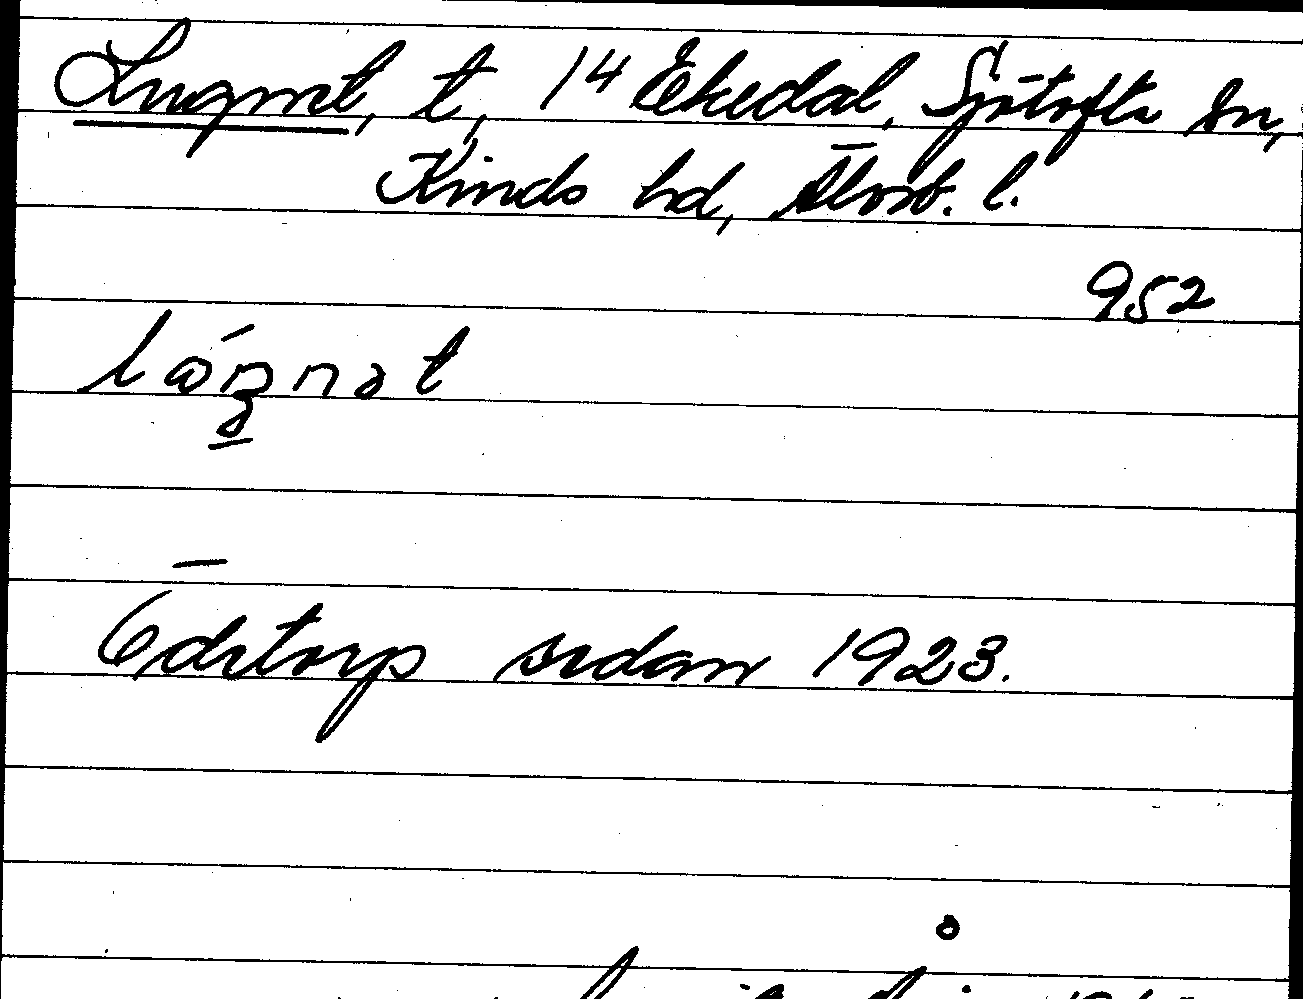 Lugnet, t, 14 Ekedal, Sjötofta sn,
Kinds hd, Älvsb. l.
952
Ödetorp sedan 1923.